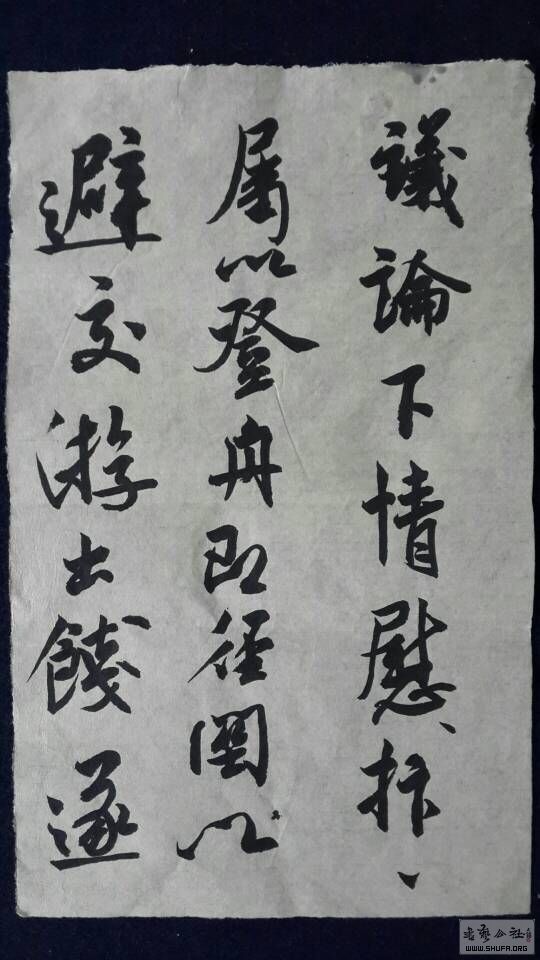 議論下情慰、抃、
屬以登舟即徑以
避交游出餞遂
书艺公社
WWW.SHUFA.ORG